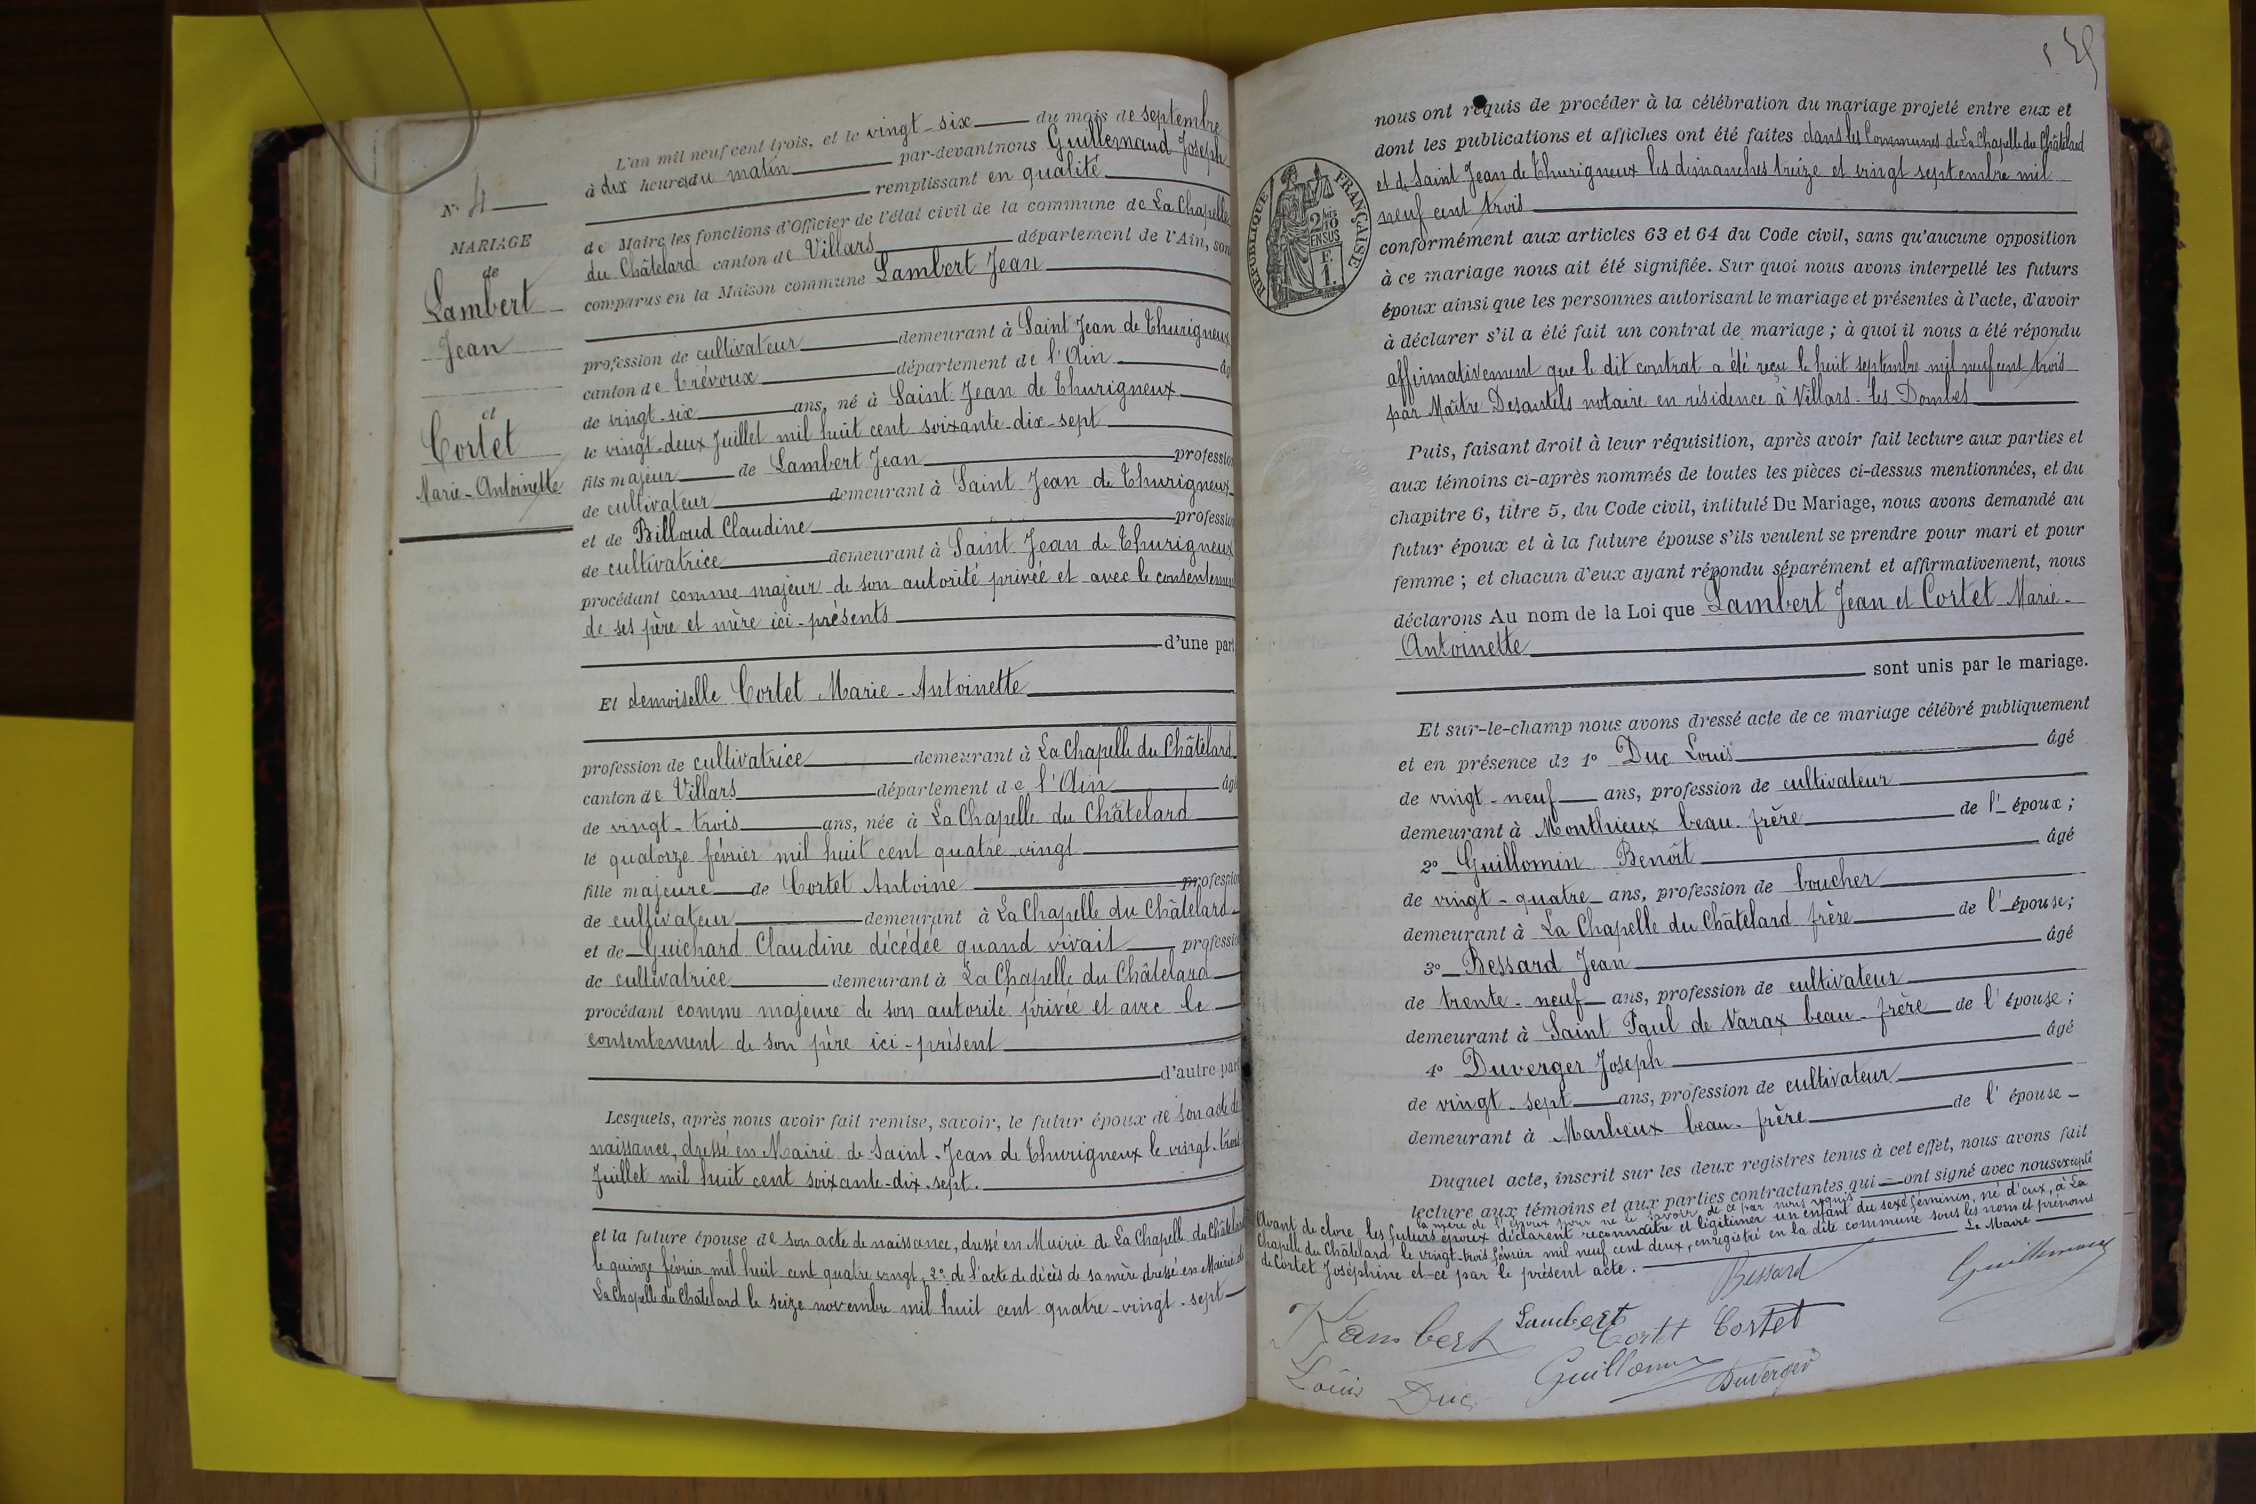 L'an mil neuf cent trois, et le vingt-six du mois de septembre
à dix heures du matin par-devant nous Guillemaud Joseph
remplissant en qualité
de Maire les fonctions d'Officier de l'état civil de la commune de La Chapelle
du Châtelard canton de Villars département de l'Ain, son
comparus en la Maison commune Lambert Jean
profession de cultivateur demeurant à Saint Jean de Thurigneux
canton de Trévoux département de l'Ain âg
de vingt-six ans, né à Saint Jean de Thurigneux
le vingt-deux Juillet mil huit cent soixante-dix-sept
fils majeur de Lambert Jean profession
de cultivateur demeurant à Saint Jean de Thurigneux
et de Billoud Claudine profession
de cultivatrice demeurant à Saint Jean de Thurigneux
procédant comme majeur de son autorité privée et avec le consentement
de ses père et mère ici-présents
d'une part
Et demoiselle Cortet Marie-Antoinette
profession de cultivatrice demeurant à La Chapelle du Châtelard
canton de Villars département de l'Ain âg
de vingt-trois ans, née à La Chapelle du Châtelard
le quatorze février mil huit cent quatre-vingt
fille majeure de Cortet Antoine profession
de cultivateur demeurant à La Chapelle du Châtelard
et de Guichard Claudine décédée quand vivait profession
de cultivatrice demeurant à La Chapelle du Châtelard
procédant comme majeure de son autorité privée et avec le
consentement de son père ici-présent
d'autre part
Lesquels, après nous avoir fait remise, savoir, le futur époux de son acte de
naissance, dressé en Mairie de Saint-Jean de Thurigneux le vingt-trois
Juillet mil huit cent soixante-dix-sept.
et la future épouse de son acte de naissance, dressé en Mairie de La Chapelle du Châtelard
le quinze février mil huit cent quatre vingt, 2º de l'acte de décès de sa mère dressé en Mairie de
La Chapelle du Châtelard le seize novembre mil huit cent quatre-vingt-sept
Nº 4
MARIAGE
de
Lambert
Jean
et
Cortet
Marie-Antoinette
nous ont requis de procéder à la célébration du mariage projeté entre eux et
dont les publications et affiches ont été faites dans les Communes de La Chapelle du Châtelard
et de Saint Jean de Thurigneux les dimanches treize et vingt septembre mil
neuf cent trois
conformément aux articles 63 et 64 du Code civil, sans qu'aucune opposition
à ce mariage nous ait été signifiée. Sur quoi nous avons interpellé les futurs
époux ainsi que les personnes autorisant le mariage et présentes à l'acte, d'avoir
à déclarer s'il a été fait un contrat de mariage ; à quoi il nous a été répondu
affirmativement que le dit contrat a été reçu le huit septembre mil neuf cent trois
par Maître Desautels notaire en résidence à Villars-les Dombes
Puis, faisant droit à leur réquisition, après avoir fait lecture aux parties et
aux témoins ci-après nommés de toutes les pièces ci-dessus mentionnées, et du
chapitre 6, titre 5, du Code civil, intitulé Du Mariage, nous avons demandé au
futur époux et à la future épouse s'ils veulent se prendre pour mari et pour
femme ; et chacun d'eux ayant répondu séparément et affirmativement, nous
déclarons Au nom de la Loi que Lambert Jean et Cortet Marie-
Antoinette
sont unis par le mariage.
Et sur-le-champ nous avons dressé acte de ce mariage célébré publiquement
et en présence de 1º Duc Louis âgé
de vingt-neuf ans, profession de cultivateur
demeurant à Monthieux beau-frère de l'époux ;
2º Guillomin Benoît âgé
de vingt-quatre ans, profession de boucher
demeurant à La Chapelle du Châtelard frère de l'épouse;
3º Bessard Jean âgé
de trente-neuf ans, profession de cultivateur
demeurant à Saint Paul de Varax beau-frère de l'épouse ;
4º Duverger Joseph âgé
de vingt-sept ans, profession de cultivateur
demeurant à Marlieux beau-frère de l'épouse
Duquel acte, inscrit sur les deux registres tenus à cet effet, nous avons fait
lecture aux témoins et aux parties contractantes qui ont signé avec nous excepté
la mère de l'époux pour ne le savoir de ce par nous requis
Avant de clore les futurs époux déclarent reconnaître et légitimer un enfant du sexe féminin, né d'eux, à La
Chapelle du Châtelard le vingt-trois février mil neuf cent deux, enregistré en la dite commune sous les nom et prénoms
de Cortet Joséphine et ce par le présent acte. Le Maire
Bessard Guillemaud
Lambert Lambert Cortet Cortet
Louis Duc Guillomin Duverger
RÉPUBLIQUE FRANÇAISE
2/10 EN SUS
F.
1.